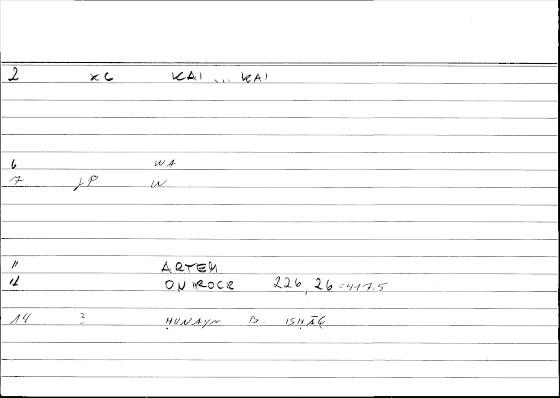 2 xc KAI ... KAI
6 WA
7 JP W
11 ARTEM
12 ONIROCR 226, 26 = 417.5
14 ? ḤUNAYN B. ISḤĀQ